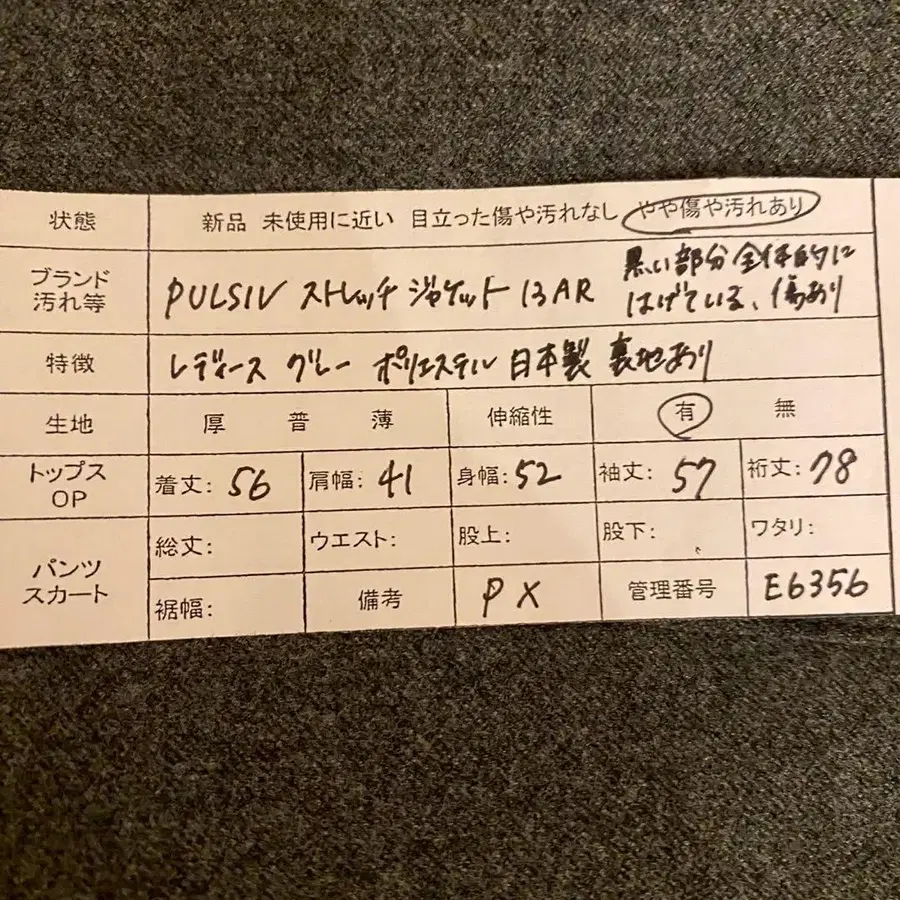 状態 新品 未使用に近い 目立った傷や汚れなし やや傷や汚れあり
ブランド 汚れ等 PULSIV ストレッチ ジャケット 13AR 黒い部分全体的に
はげている、傷あり
特徴 レディース グレー ポリエステル 日本製 裏地あり
生地 厚 普 薄 伸縮性 有 無
トップス OP 着丈: 56 肩幅: 41 身幅: 52 袖丈: 57 裄丈: 78
パンツ スカート 総丈: ウエスト: 股上: 股下: ワタリ:
裾幅: 備考 PX 管理番号 E6356